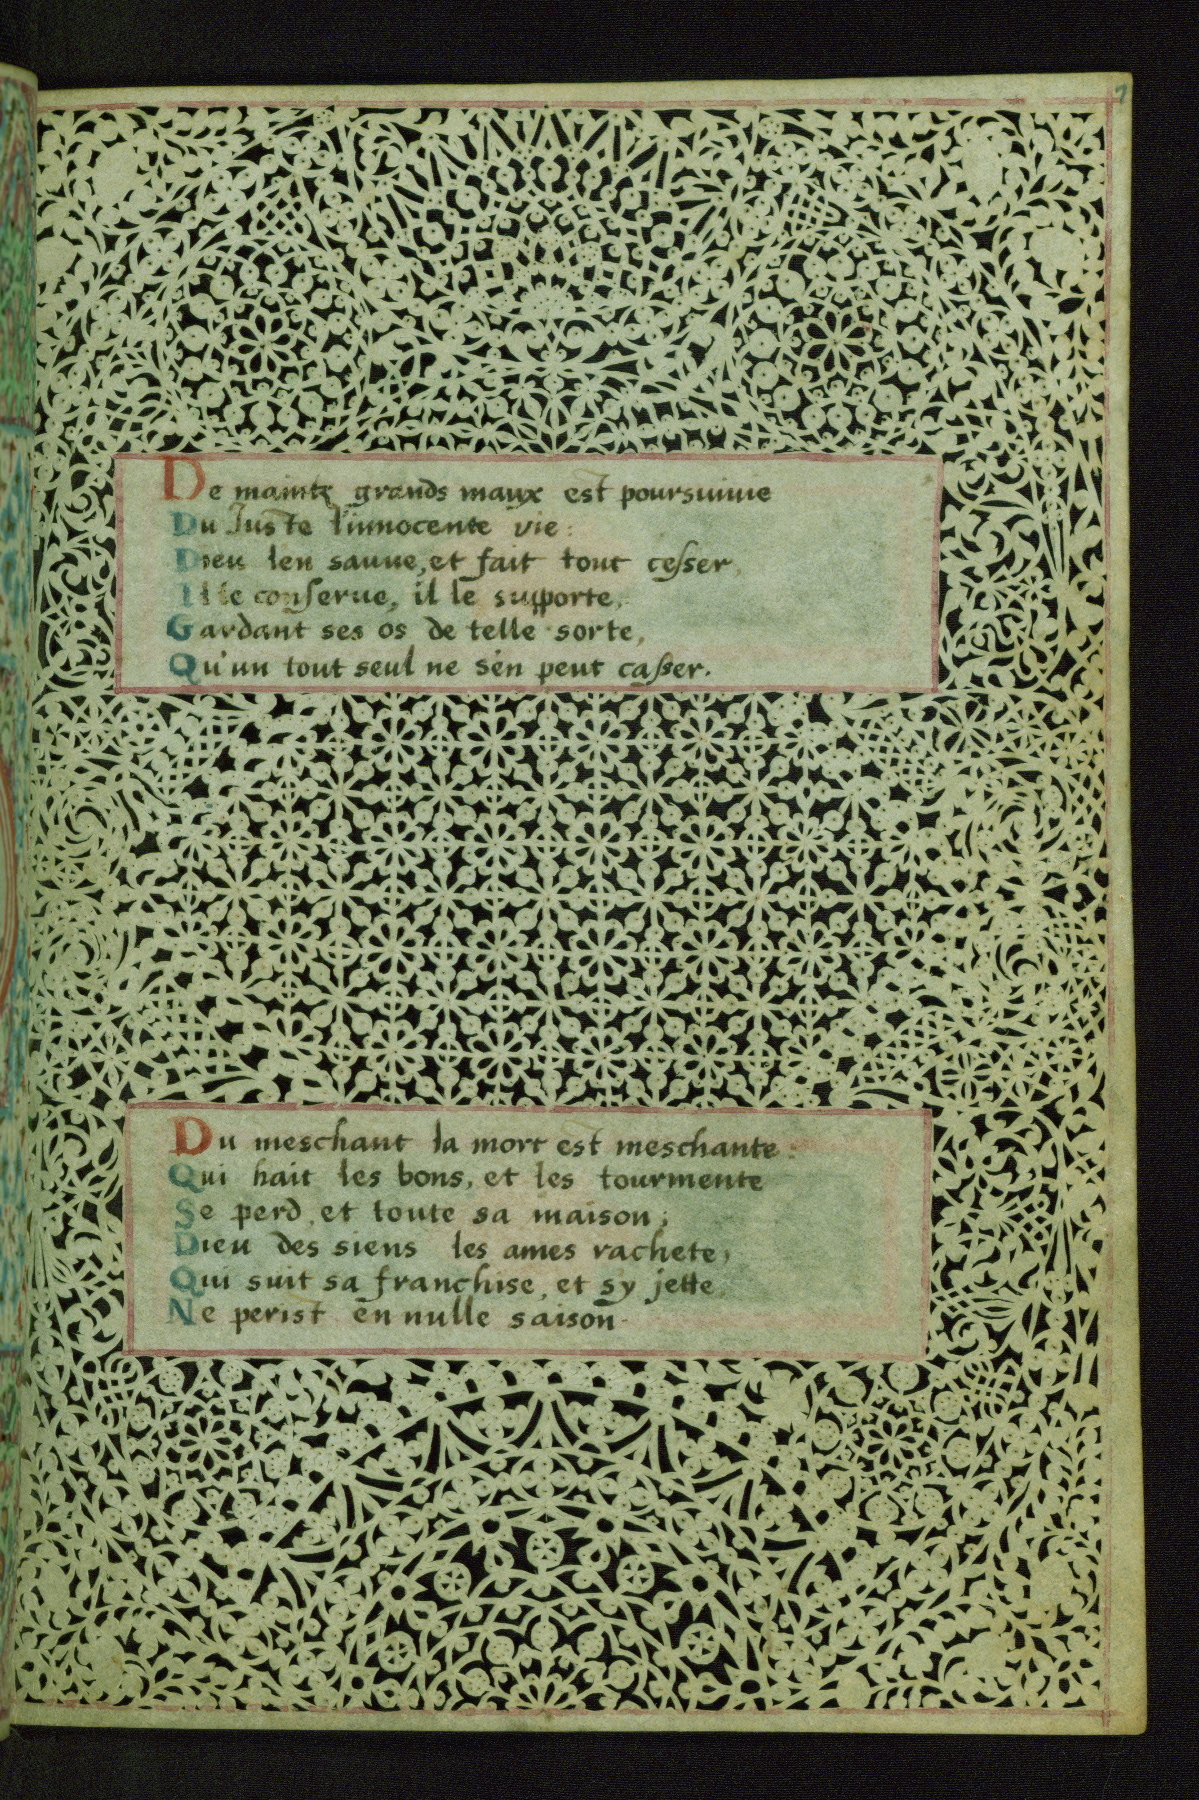 7
De maintz grands maux est poursuiuie
Du Juste l'innocente vie:
Dieu len sauue, et fait tout cesser,
Il le conserue, il le supporte,
Gardant ses os de telle sorte,
Qu'un tout seul ne s'en peut casser.
Du meschant la mort est meschante:
Qui hait les bons, et les tourmente
Se perd, et toute sa maison;
Dieu des siens les ames rachete,
Qui suit sa franchise, et sy jette
Ne perist en nulle saison.